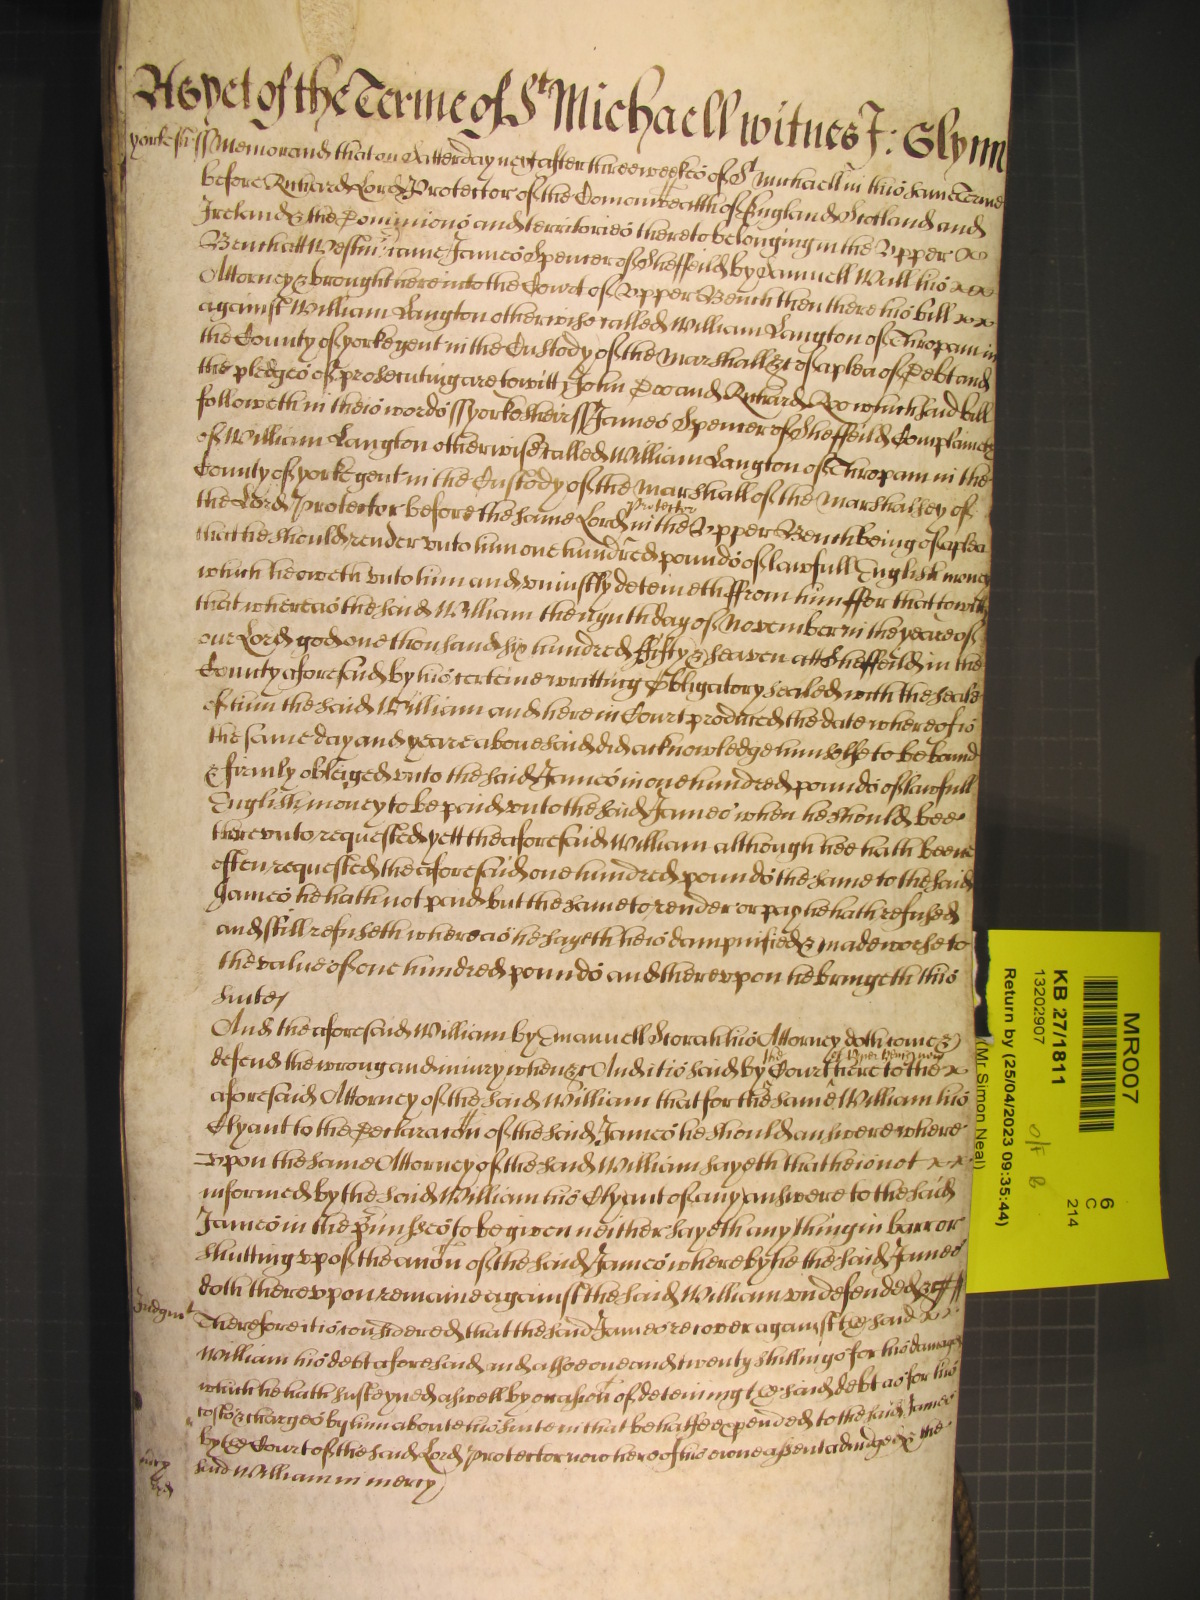 As yet of the Terme of St Michaell witnes J: Glynn
yorkesh: ss Memorand that on Satterday next after three weekes of St Michaell in this same Terme
before Richard Lord Protector of the Comonwealth of England Scotland and
Ireland & the Dominions and territories thereto belonging in the Upper
Bench att Westm̄ came James Spencer of Sheffeild by Samuell Wall his
Attorney & brought here into the Court of Upper Bench then there his bill
against William Langton otherwise called William Langton of Thropam in
the County of yorke gent in the Custody of the Marshall &c of a plea of Debt and
the pledges of prosecuting are to witt John Doo and Richard Roo which said bill
followeth in theis words ss yorkesheir ss James Spencer of Sheffeild Complaineth
of William Langton otherwise called William Langton of Thropam in the
County of york gent in the Custody of the Marshall of the Marshalsey of
the Lord Protector before the same Lord Protector in the Upper Bench being of a plea
that he should render unto him one hundred pounds of lawfull English money
which he oweth unto him and uniustly deteineth from him ffor that to witt
that whereas the said William the eigth day of November in the yeare of
our Lord god one thousand six hundred ffifty & seaven att Sheffeild in the
County aforesaid by his certeine writting Obligatory sealed with the seale
of him the said William and here in Court produced the date whereof is
the same day and yeare above said did acknowledge himselfe to be bound
& firmly obleiged unto the said James in one hundred pounds of lawfull
English money to be paid unto the said James when he should bee
thereunto requested yett the aforesaid William although hee hath beene
often requested the aforesaid one hundred pounds the same to the said
James he hath not paid but the same to render or pay he hath refused
and still refuseth whereas he sayeth he is dampnified & made worse to
the value of one hundred pounds and thereupon he bringeth this
suite/
And the aforesaid William by Emanuell Scorah his Attorney doth come &
defend the wrong and iniury when &c And it is said by the Court of Upper Bench now here to the
aforesaid Attorney of the said William that for the same William his
Clyant to the Declaracōn of the said James he should answere where
upon the same Attorney of the said William sayeth that he is not
informed by the said William his Clyant of any answere to the said
James in the p̄misses to be given neither sayeth any thing in barr or
shutting up of the accōn of the said James whereby he the said James
doth thereupon remaine against the said William undefended &c
Judgmt Therefore it is considered that the said James recover against the said
William his debt aforesaid and allsoe one and twenty shillings for his damages
which he hath susteyned aswell by occasion of deteining the said debt as for his
costs & charges by him aboute his suite in that behalfe expended to the said James
by the Court of the said Lord Protector now here of his owne assent adiudged & the
said William in mercy
mcy
MR007
KB 27/1811
13202907
Return by (25/04/2023 09:35:44)
(Mr Simon Neal)
6
C
214